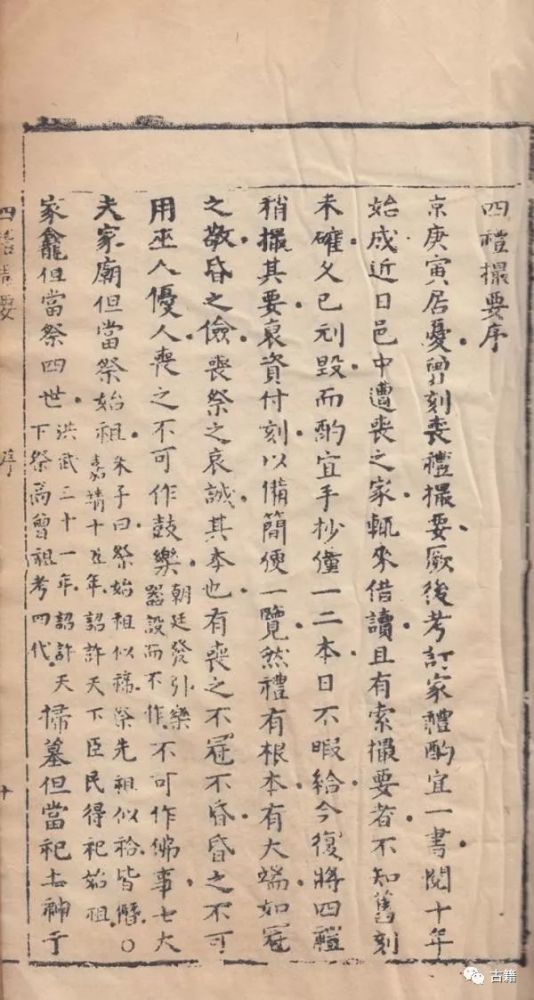 四禮撮要序
京庚寅居憂曾刻喪禮撮要厥後考訂家禮酌宜一書閱十年
始成近日邑中遭喪之家輒來借讀且有索撮要者不知舊刻
未確久已刓毀而酌宜手抄僅一二本日不暇給今復將四禮
稍撮其要裒資付刻以備簡便一覽然禮有根本有大端如冠
之敬昏之儉喪祭之哀誠其本也有喪之不冠不昏昏之不可
用巫人優人喪之不可作鼓樂朝廷發引樂器設而不作不可作佛事士大
夫家廟但當祭始祖朱子曰祭始祖似禘祭先祖似祫皆僭○嘉靖十五年詔許天下臣民得祀始祖
家龕但當祭四世洪武三十一年詔許天下祭高曾祖考四代掃墓但當祀土神于
四禮撮要 序
古籍